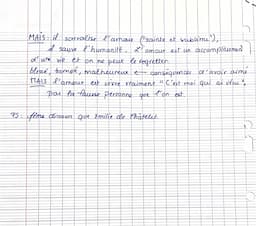 MAIS : il sacralise l'amour ("sainte et sublime"),
il sauve l'humanité. L'amour est un accomplissement
d'une vie et on ne peut le regretter.
blessé, trompé, malheureux ← conséquences d'avoir aimé
MAIS l'amour est vivre vraiment "C'est moi qui ai vécu",
pas la fausse personne que l'on est.
PS : même dessein que Emilie de Châtelet